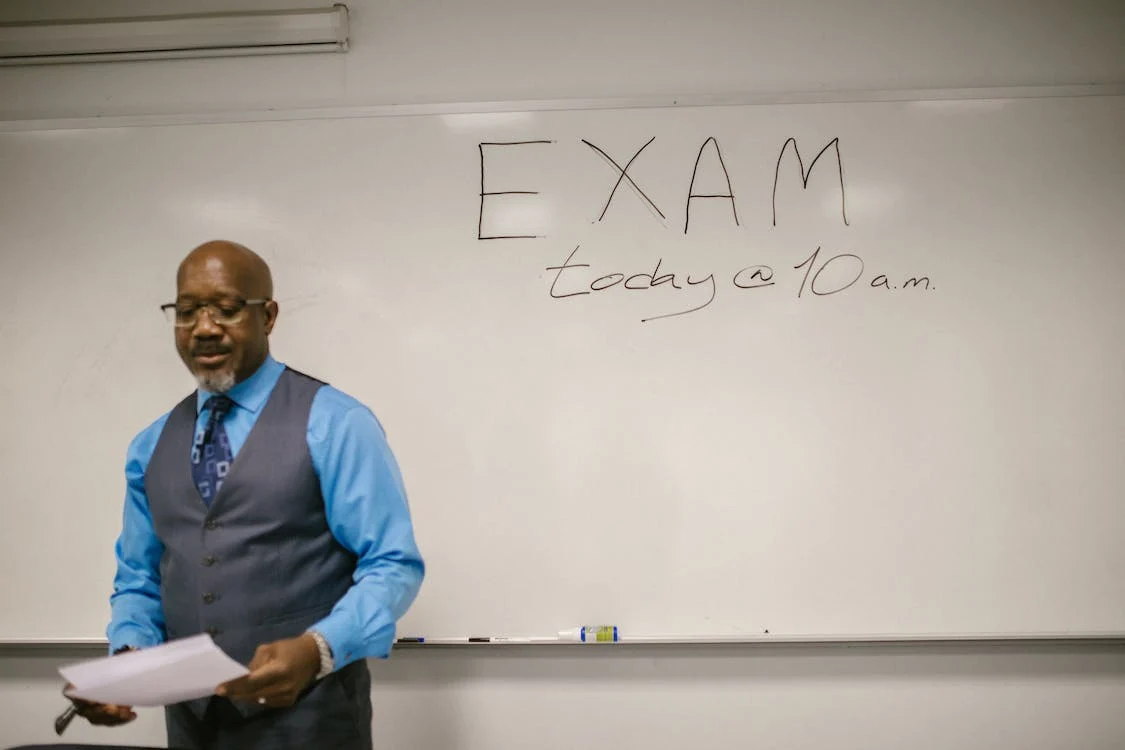 EXAM
today @ 10 a.m.